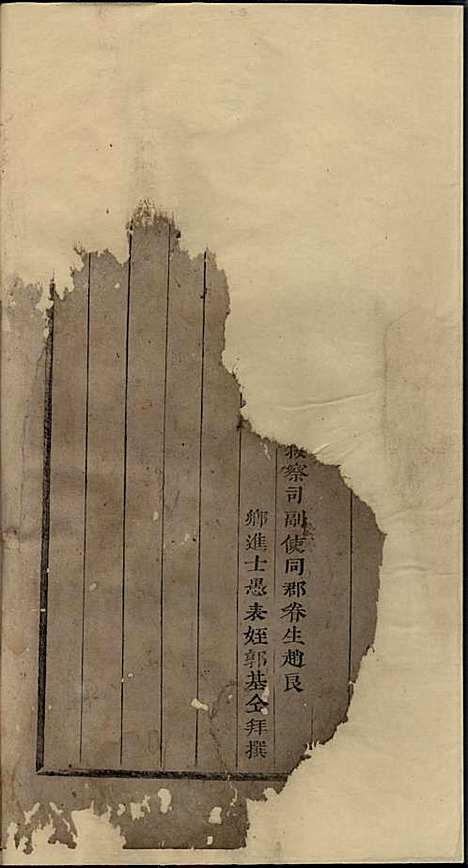 察司副使同郡眷生趙民
鄉進士愚表姪郭基仝拜撰